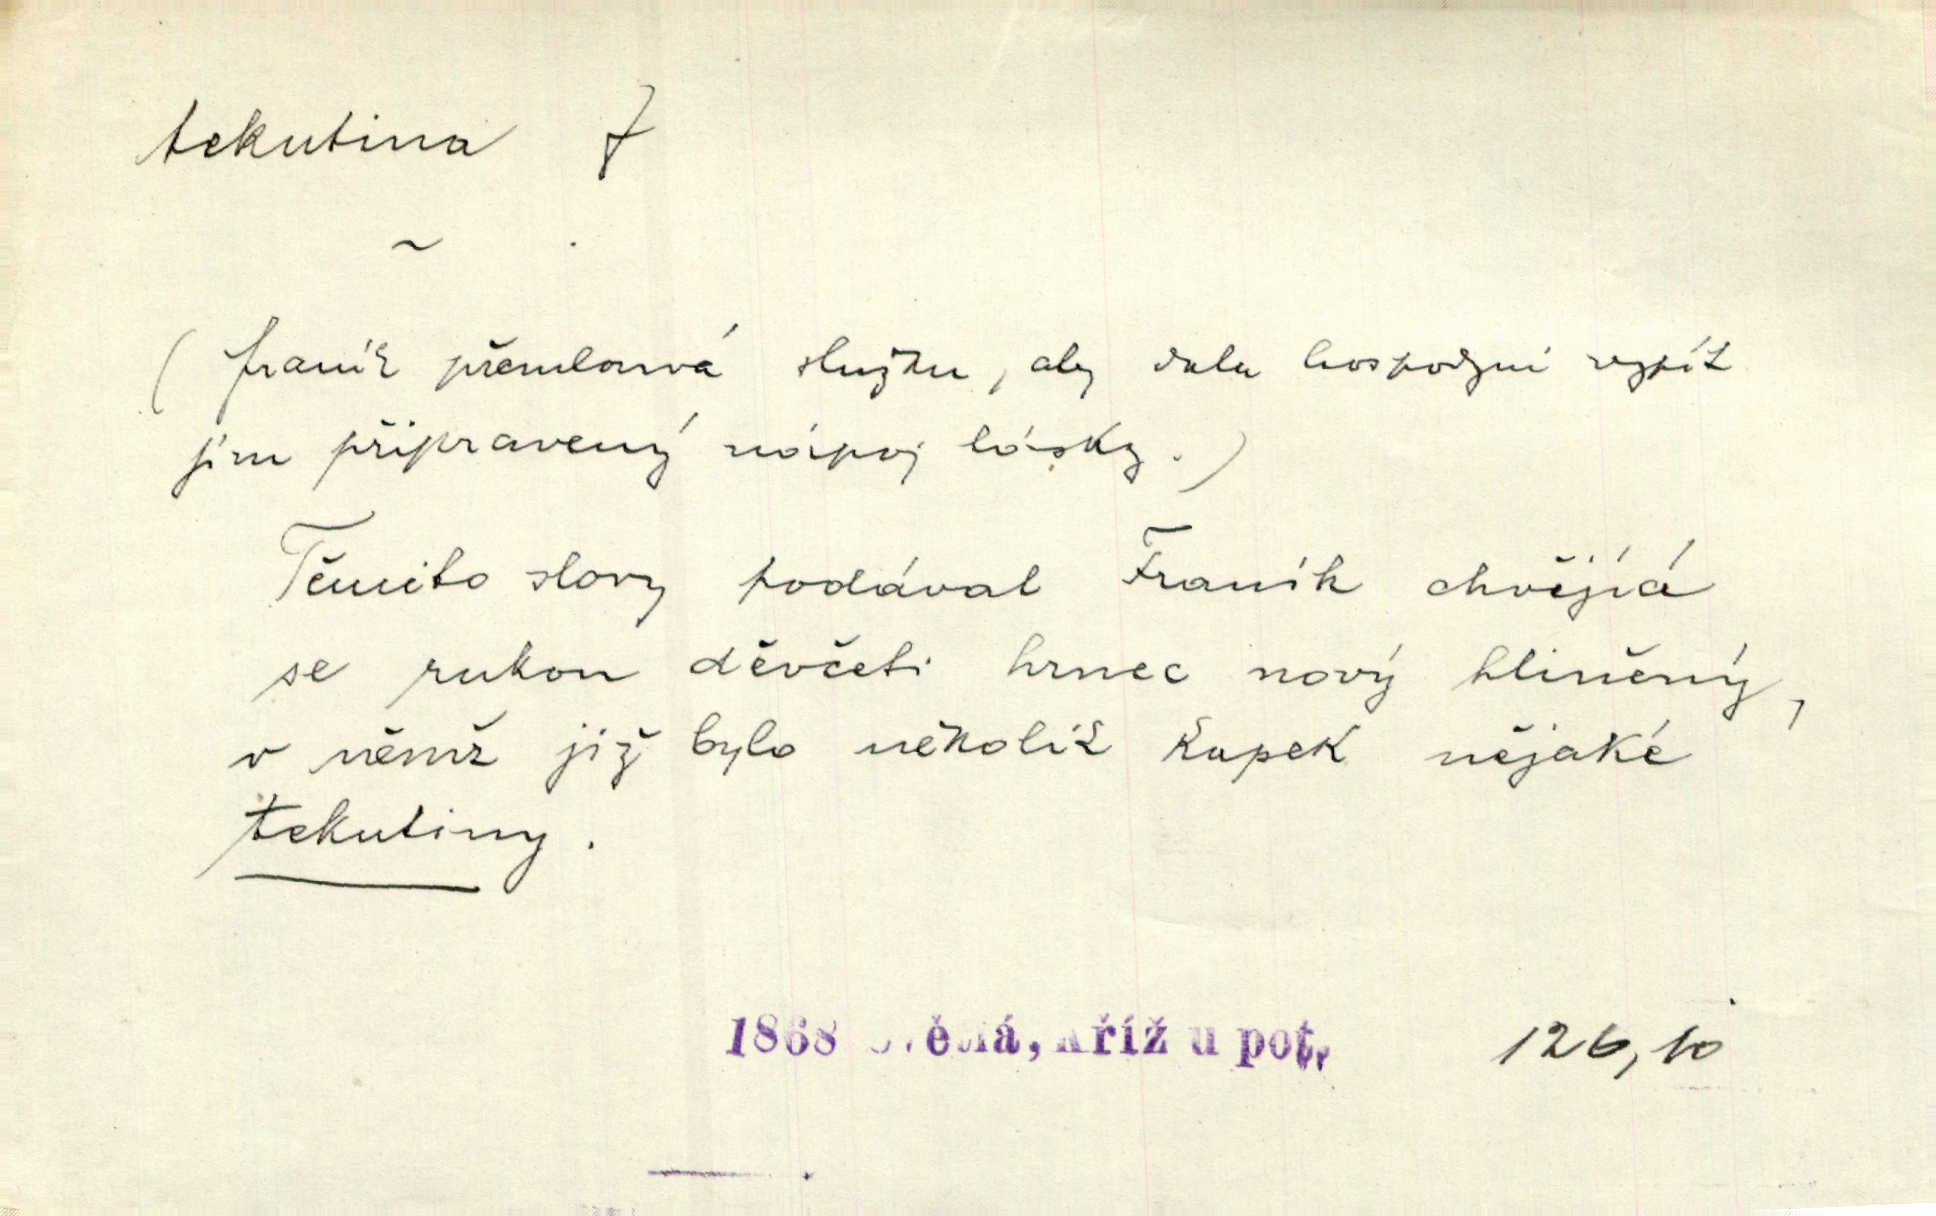 tekutina f
~
(Franík přemlouvá služku, aby dala hospodyni vypít
jím připravený nápoj lásky.)
Těmito slovy podával Franík chvějící
se rukou děvčeti hrnec nový hliněný,
v němž již bylo několik kapek nějaké
tekutiny.
1868 Světlá, Kříž u pot.
126, 10